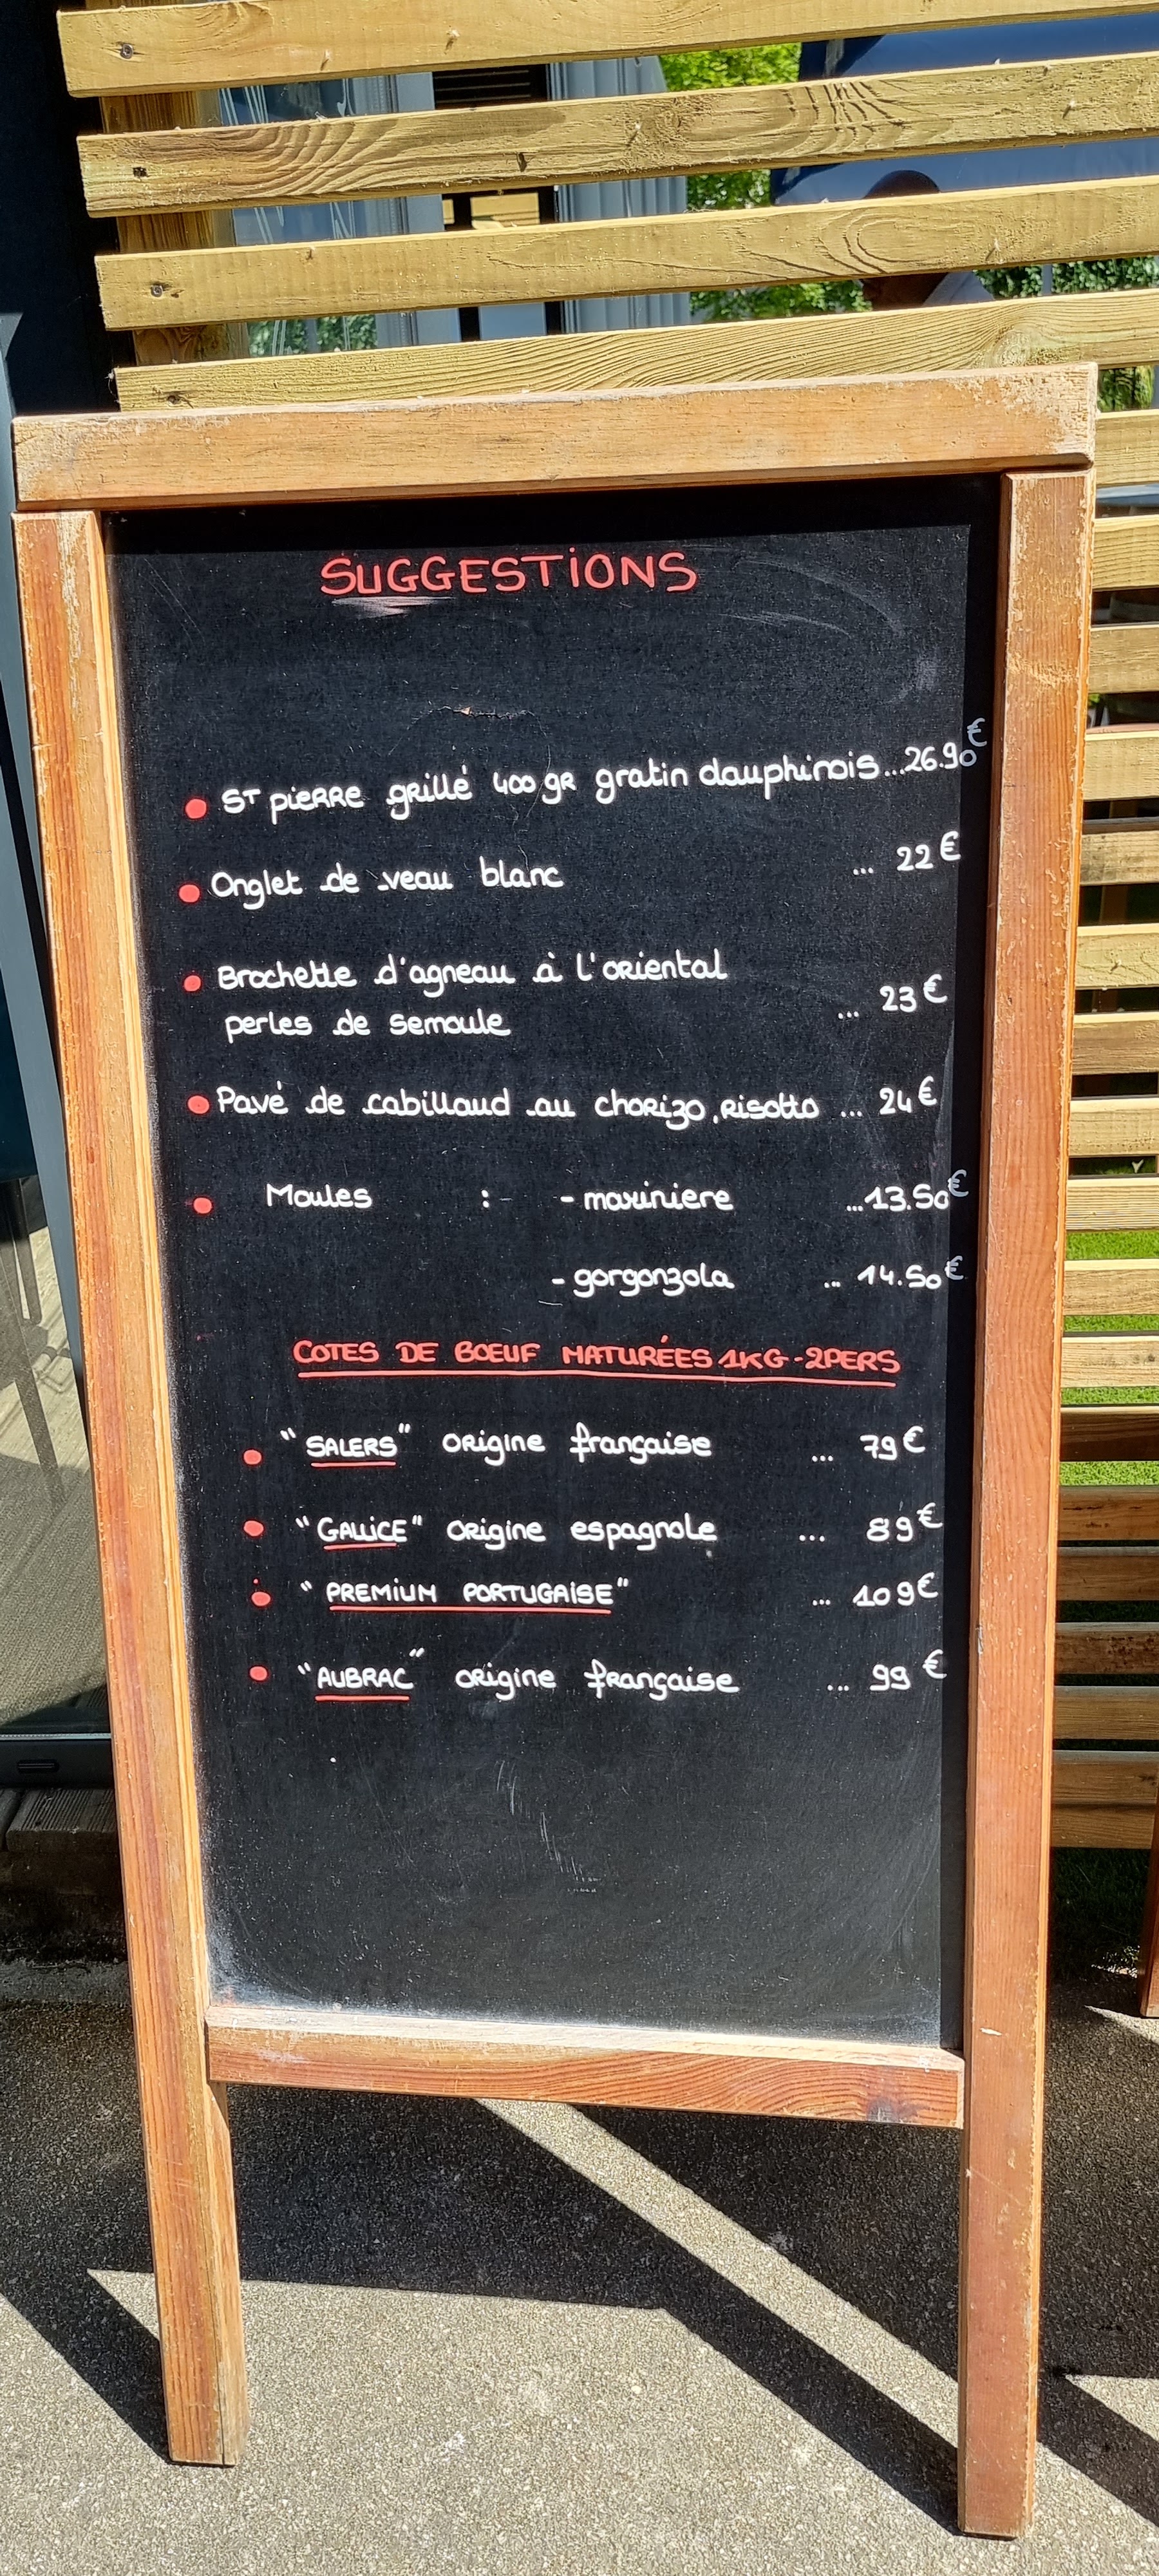 SUGGESTIONS
ST pierre grillé 400 gr gratin dauphinois...26.90€
Onglet de veau blanc ... 22€
Brochette d'agneau à l'oriental
perles de semoule ... 23€
Pavé de cabillaud au chorizo, risotto ... 24€
Moules : - mariniere ...13.50€
- gorgonzola ... 14.50€
COTES DE BOEUF MATURÉES 1KG - 2PERS
"SALERS" origine française ... 79€
"GALLICE" origine espagnole ... 89€
"PREMIUM PORTUGAISE" ... 109€
"AUBRAC" origine française ... 99€